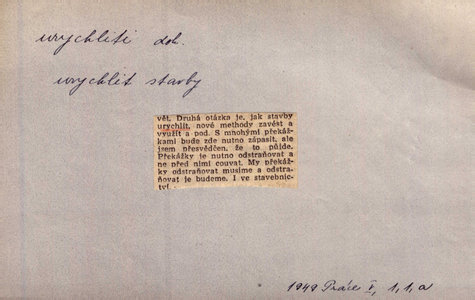 urychliti dok.
urychlit stavby
vět. Druhá otázka je, jak stavby
urychlit, nové methody zavést a
využít a pod. S mnohými překáž-
kami bude zde nutno zápasit, ale
jsem přesvědčen, že to půjde.
Překážky je nutno odstraňovat a
ne před nimi couvat. My překáž-
ky odstraňovat musíme a odstra-
ňovat je budeme. I ve stavebnic-
tví.
1949 Práce V, 1, 1, a